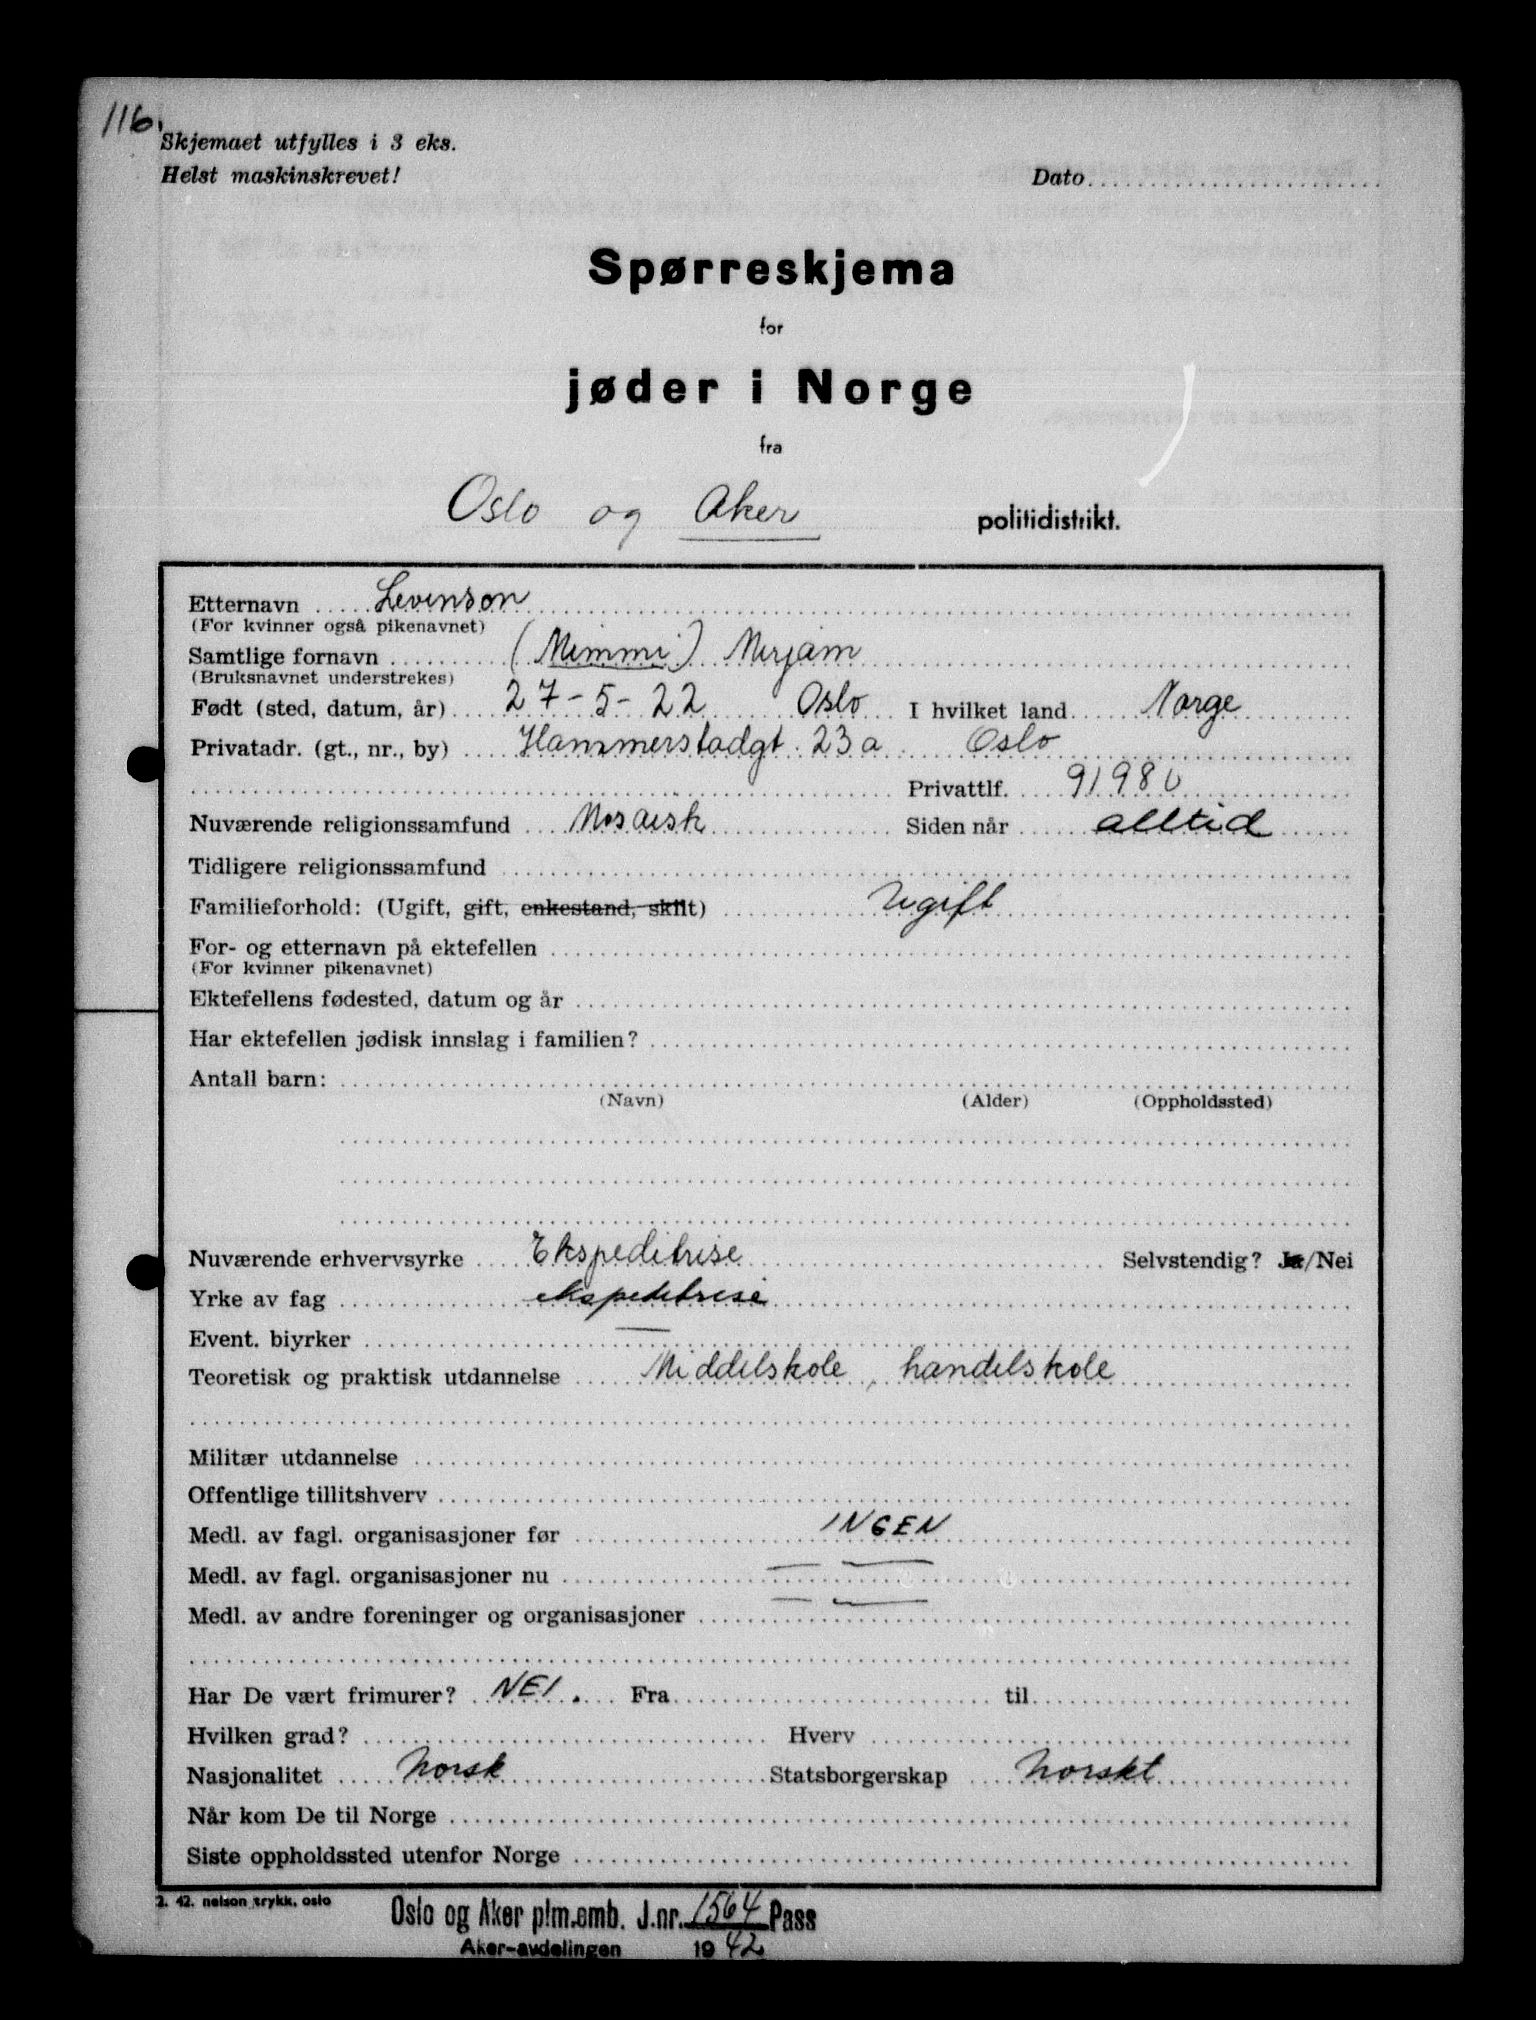 116.
Skjemaet utfylles i 3 eks.
Helst maskinskrevet!
Dato
Spørreskjema
for
jøder i Norge
fra
Oslo og Aker politidistrikt.
Etternavn Levinson
(For kvinner også pikenavnet)
Samtlige fornavn (Mimmi) Mirjam
(Bruksnavnet understrekes)
Født (sted, datum, år) 27-5-22 Oslo I hvilket land Norge
Privatadr. (gt., nr., by) Hammerstadgt. 23a Oslo
Privattlf. 91980
Nuværende religionssamfund Mosaisk Siden når alltid
Tidligere religionssamfund
Familieforhold: (Ugift, gift, enkestand, skilt) Ugift
For- og etternavn på ektefellen
(For kvinner pikenavnet)
Ektefellens fødested, datum og år
Har ektefellen jødisk innslag i familien?
Antall barn:
(Navn) (Alder) (Oppholdssted)
Nuværende erhvervsyrke Ekspeditrise Selvstendig? Ja/Nei
Yrke av fag ekspeditrise
Event. biyrker —
Teoretisk og praktisk utdannelse Middelskole, handelskole
Militær utdannelse
Offentlige tillitshverv
Medl. av fagl. organisasjoner før INGEN
Medl. av fagl. organisasjoner nu — —
Medl. av andre foreninger og organisasjoner — —
Har De vært frimurer? NEI. Fra til
Hvilken grad? Hverv
Nasjonalitet Norsk Statsborgerskap Norskt
Når kom De til Norge
Siste oppholdssted utenfor Norge
2. 42. nelson trykk, oslo
Oslo og Aker plm.emb. J.nr. 1564 Pass
Aker-avdelingen 1942